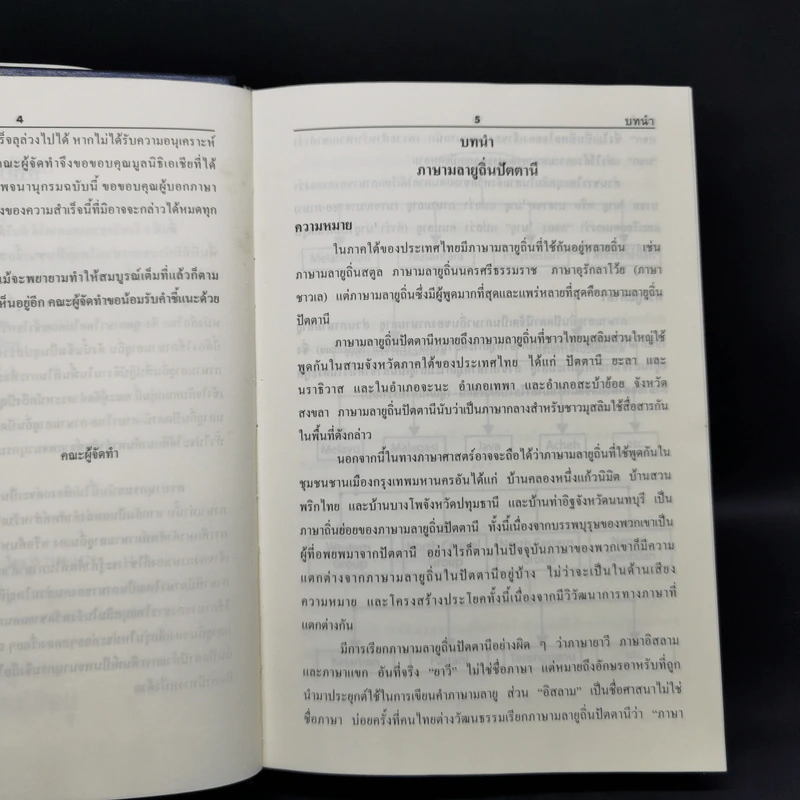 4
ร็จลุล่วงไปได้ หากไม่ได้รับความอนุเคราะห์
คณะผู้จัดทำจึงขอขอบคุณมูลนิธิเอเชียที่ได้
พจนานุกรมฉบับนี้ ขอขอบคุณผู้บอกภาษา
งของความสำเร็จนี้ที่มิอาจจะกล่าวได้หมดทุก
ม้จะพยายามทำให้สมบูรณ์เต็มที่แล้วก็ตาม
ห็นอยู่อีก คณะผู้จัดทำขอน้อมรับคำชี้แนะด้วย
คณะผู้จัดทำ
5 บทนำ
บทนำ
ภาษามลายูถิ่นปัตตานี
ความหมาย
ในภาคใต้ของประเทศไทยมีภาษามลายูถิ่นที่ใช้กันอยู่หลายถิ่น เช่น
ภาษามลายูถิ่นสตูล ภาษามลายูถิ่นนครศรีธรรมราช ภาษาอุรักลาโว้ย (ภาษา
ชาวเล) แต่ภาษามลายูถิ่นซึ่งมีผู้พูดมากที่สุดและแพร่หลายที่สุดคือภาษามลายูถิ่น
ปัตตานี
ภาษามลายูถิ่นปัตตานีหมายถึงภาษามลายูถิ่นที่ชาวไทยมุสลิมส่วนใหญ่ใช้
พูดกันในสามจังหวัดภาคใต้ของประเทศไทย ได้แก่ ปัตตานี ยะลา และ
นราธิวาส และในอำเภอจะนะ อำเภอเทพา และอำเภอสะบ้าย้อย จังหวัด
สงขลา ภาษามลายูถิ่นปัตตานีนับว่าเป็นภาษากลางสำหรับชาวมุสลิมใช้สื่อสารกัน
ในพื้นที่ดังกล่าว
นอกจากนี้ในทางภาษาศาสตร์อาจจะถือได้ว่าภาษามลายูถิ่นที่ใช้พูดกันใน
ชุมชนชานเมืองกรุงเทพมหานครอันได้แก่ บ้านคลองหนึ่งแก้วนิมิต บ้านสวน
พริกไทย และบ้านบางโพธิ์จังหวัดปทุมธานี และบ้านท่าอิฐจังหวัดนนทบุรี เป็น
ภาษาถิ่นย่อยของภาษามลายูถิ่นปัตตานี ทั้งนี้เนื่องจากบรรพบุรุษของพวกเขาเป็น
ผู้ที่อพยพมาจากปัตตานี อย่างไรก็ตามในปัจจุบันภาษาของพวกเขาก็มีความ
แตกต่างจากภาษามลายูถิ่นในปัตตานีอยู่บ้าง ไม่ว่าจะเป็นในด้านเสียง
ความหมาย และโครงสร้างประโยคทั้งนี้เนื่องจากมีวิวัฒนาการทางภาษาที่
แตกต่างกัน
มีการเรียกภาษามลายูถิ่นปัตตานีอย่างผิด ๆ ว่าภาษายาวี ภาษาอิสลาม
และภาษาแขก อันที่จริง “ยาวี” ไม่ใช่ชื่อภาษา แต่หมายถึงอักษรอาหรับที่ถูก
นำมาประยุกต์ใช้ในการเขียนคำภาษามลายู ส่วน “อิสลาม” เป็นชื่อศาสนาไม่ใช่
ชื่อภาษา บ่อยครั้งที่คนไทยต่างวัฒนธรรมเรียกภาษามลายูถิ่นปัตตานีว่า “ภาษา